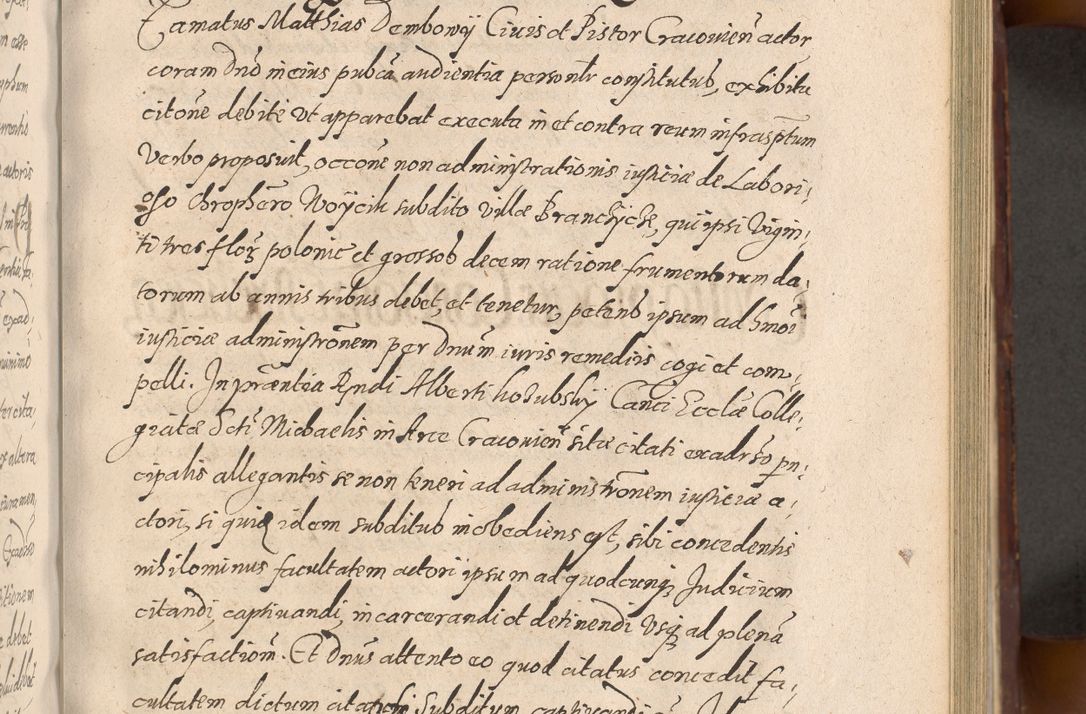 Famatus Matthias Dembowÿ Ciuis et Pistor Cracouien̄ actor
coram Dnō in eius pub̄ca audientia personl̄r constitutus, exhibita
citōne debitè vt apparebat executa in et contra reum infrasp̄tum
Verbo proposuit, occōne non administrationis iusticiæ de Labori,
oso Chrophēro Woÿcik subdito Villæ Branczÿcze, qui ipsi Vigin,
ti tres flor polonic et grossos decem ratione frumentorum da,
torum ab annis tribus debet, et tenetur, petens ipsum ad hmōi
iusticiæ administrōnem per Dnūm iuris remediis cogi et com,
pelli. In prǣntia Rn̄di Alberti Canci Ecclæ Colle,
giatæ Scti Michaelis in Arce Cracouien̄ sitæ citati ex adrso pn,
cipalis allegantis se non teneri ad administrōnem iusticiæ a,
ctori, si quidē idem subditus inobediens est, sibi concedentis
nihilominus facultatem actori ipsum ad quodcunq; Judicium
citandi, captiuandi, incarcerandi et detinendi Vsq; ad plenā
satisfactiom̄. Et Dnūs attento eo quod citatus concedit fa,
cultatem dictum citati subditum captiuandi